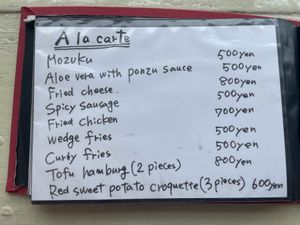 A la carte
Mozuku 500yen
Aloe vera with ponzu sauce 500yen
Fried cheese 800yen
Spicy sausage 500yen
Fried chicken 700yen
wedge fries 500yen
Curly fries 500yen
Tofu hamburg (2 pieces) 800yen
Red sweet potato croquette (3 pieces) 600yen